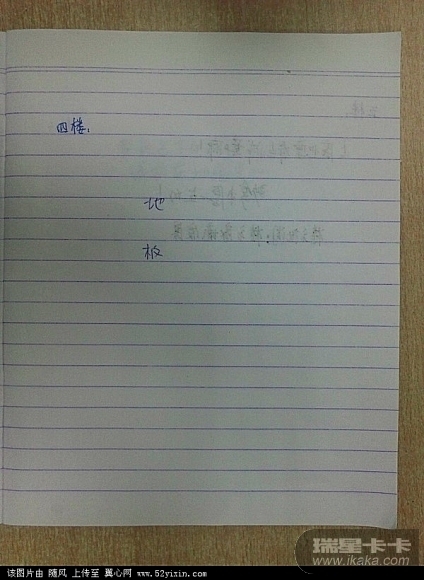 四楼:
地
板
瑞星卡卡
www.ikaka.com
该图片由 随风 上传至 翼心网 www.52yixin.com